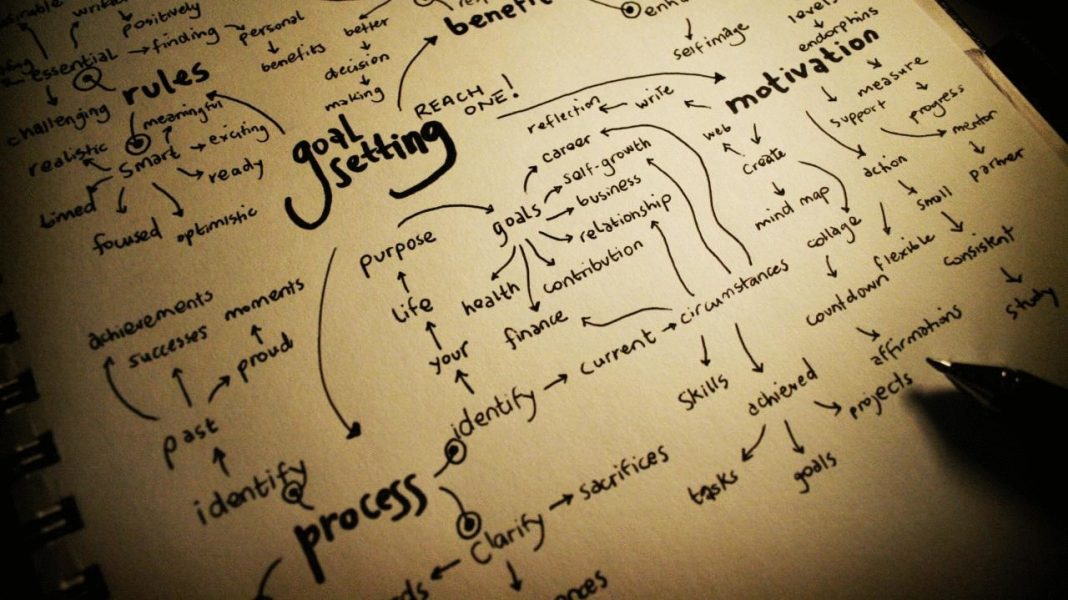 written
positively
essential
finding
personal
benefits
better
decision
making
benefit
self image
levels
endorphins
motivation
rules
challenging
meaningful
exciting
realistic
smart
ready
timed
focused
optimistic
goal
setting
REACH
ONE!
reflection
write
web
create
mind map
collage
countdown
affirmations
measure
progress
support
mentor
partner
action
small
consistent
study
flexible
career
self-growth
business
goals
relationship
contribution
health
finance
purpose
life
your
identify
current
circumstances
skills
achieved
projects
tasks
goals
achievements
successes
moments
proud
past
identify
process
clarify
sacrifices